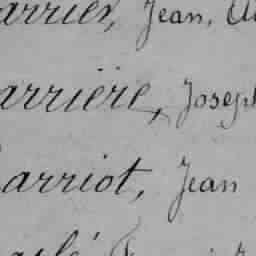 arrier, Jean,
arrière, Joseph
arriot, Jean